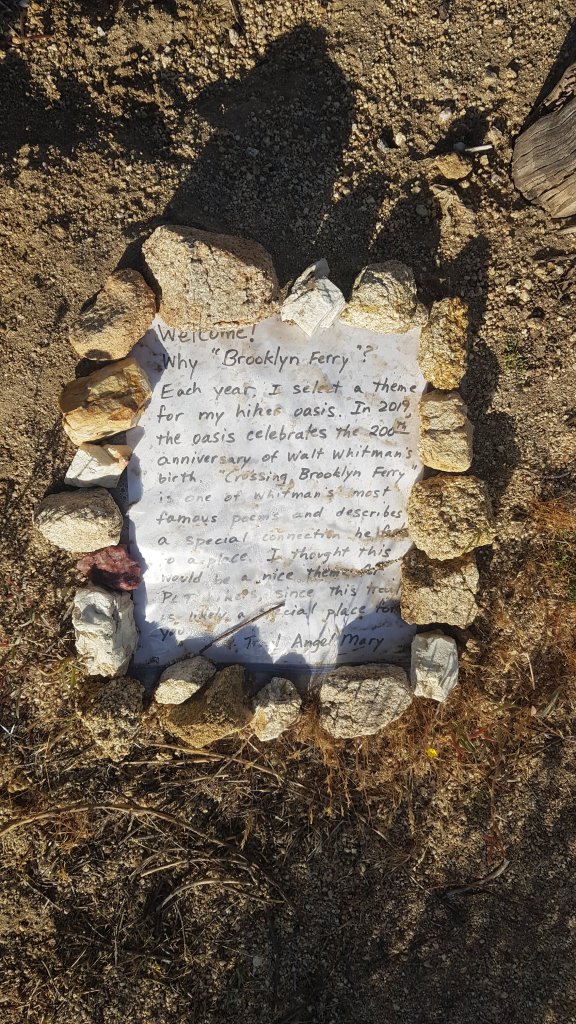 Welcome!
Why "Brooklyn Ferry"?
Each year, I select a theme
for my hiker oasis. In 2019,
the oasis celebrates the 200th
anniversary of Walt Whitman's
birth. "Crossing Brooklyn Ferry"
is one of Whitman's most
famous poems and describes
a special connection he felt
to a place. I thought this
would be a nice theme for
PCT since this trail
is likely a special place for
you. Trail Angel Mary